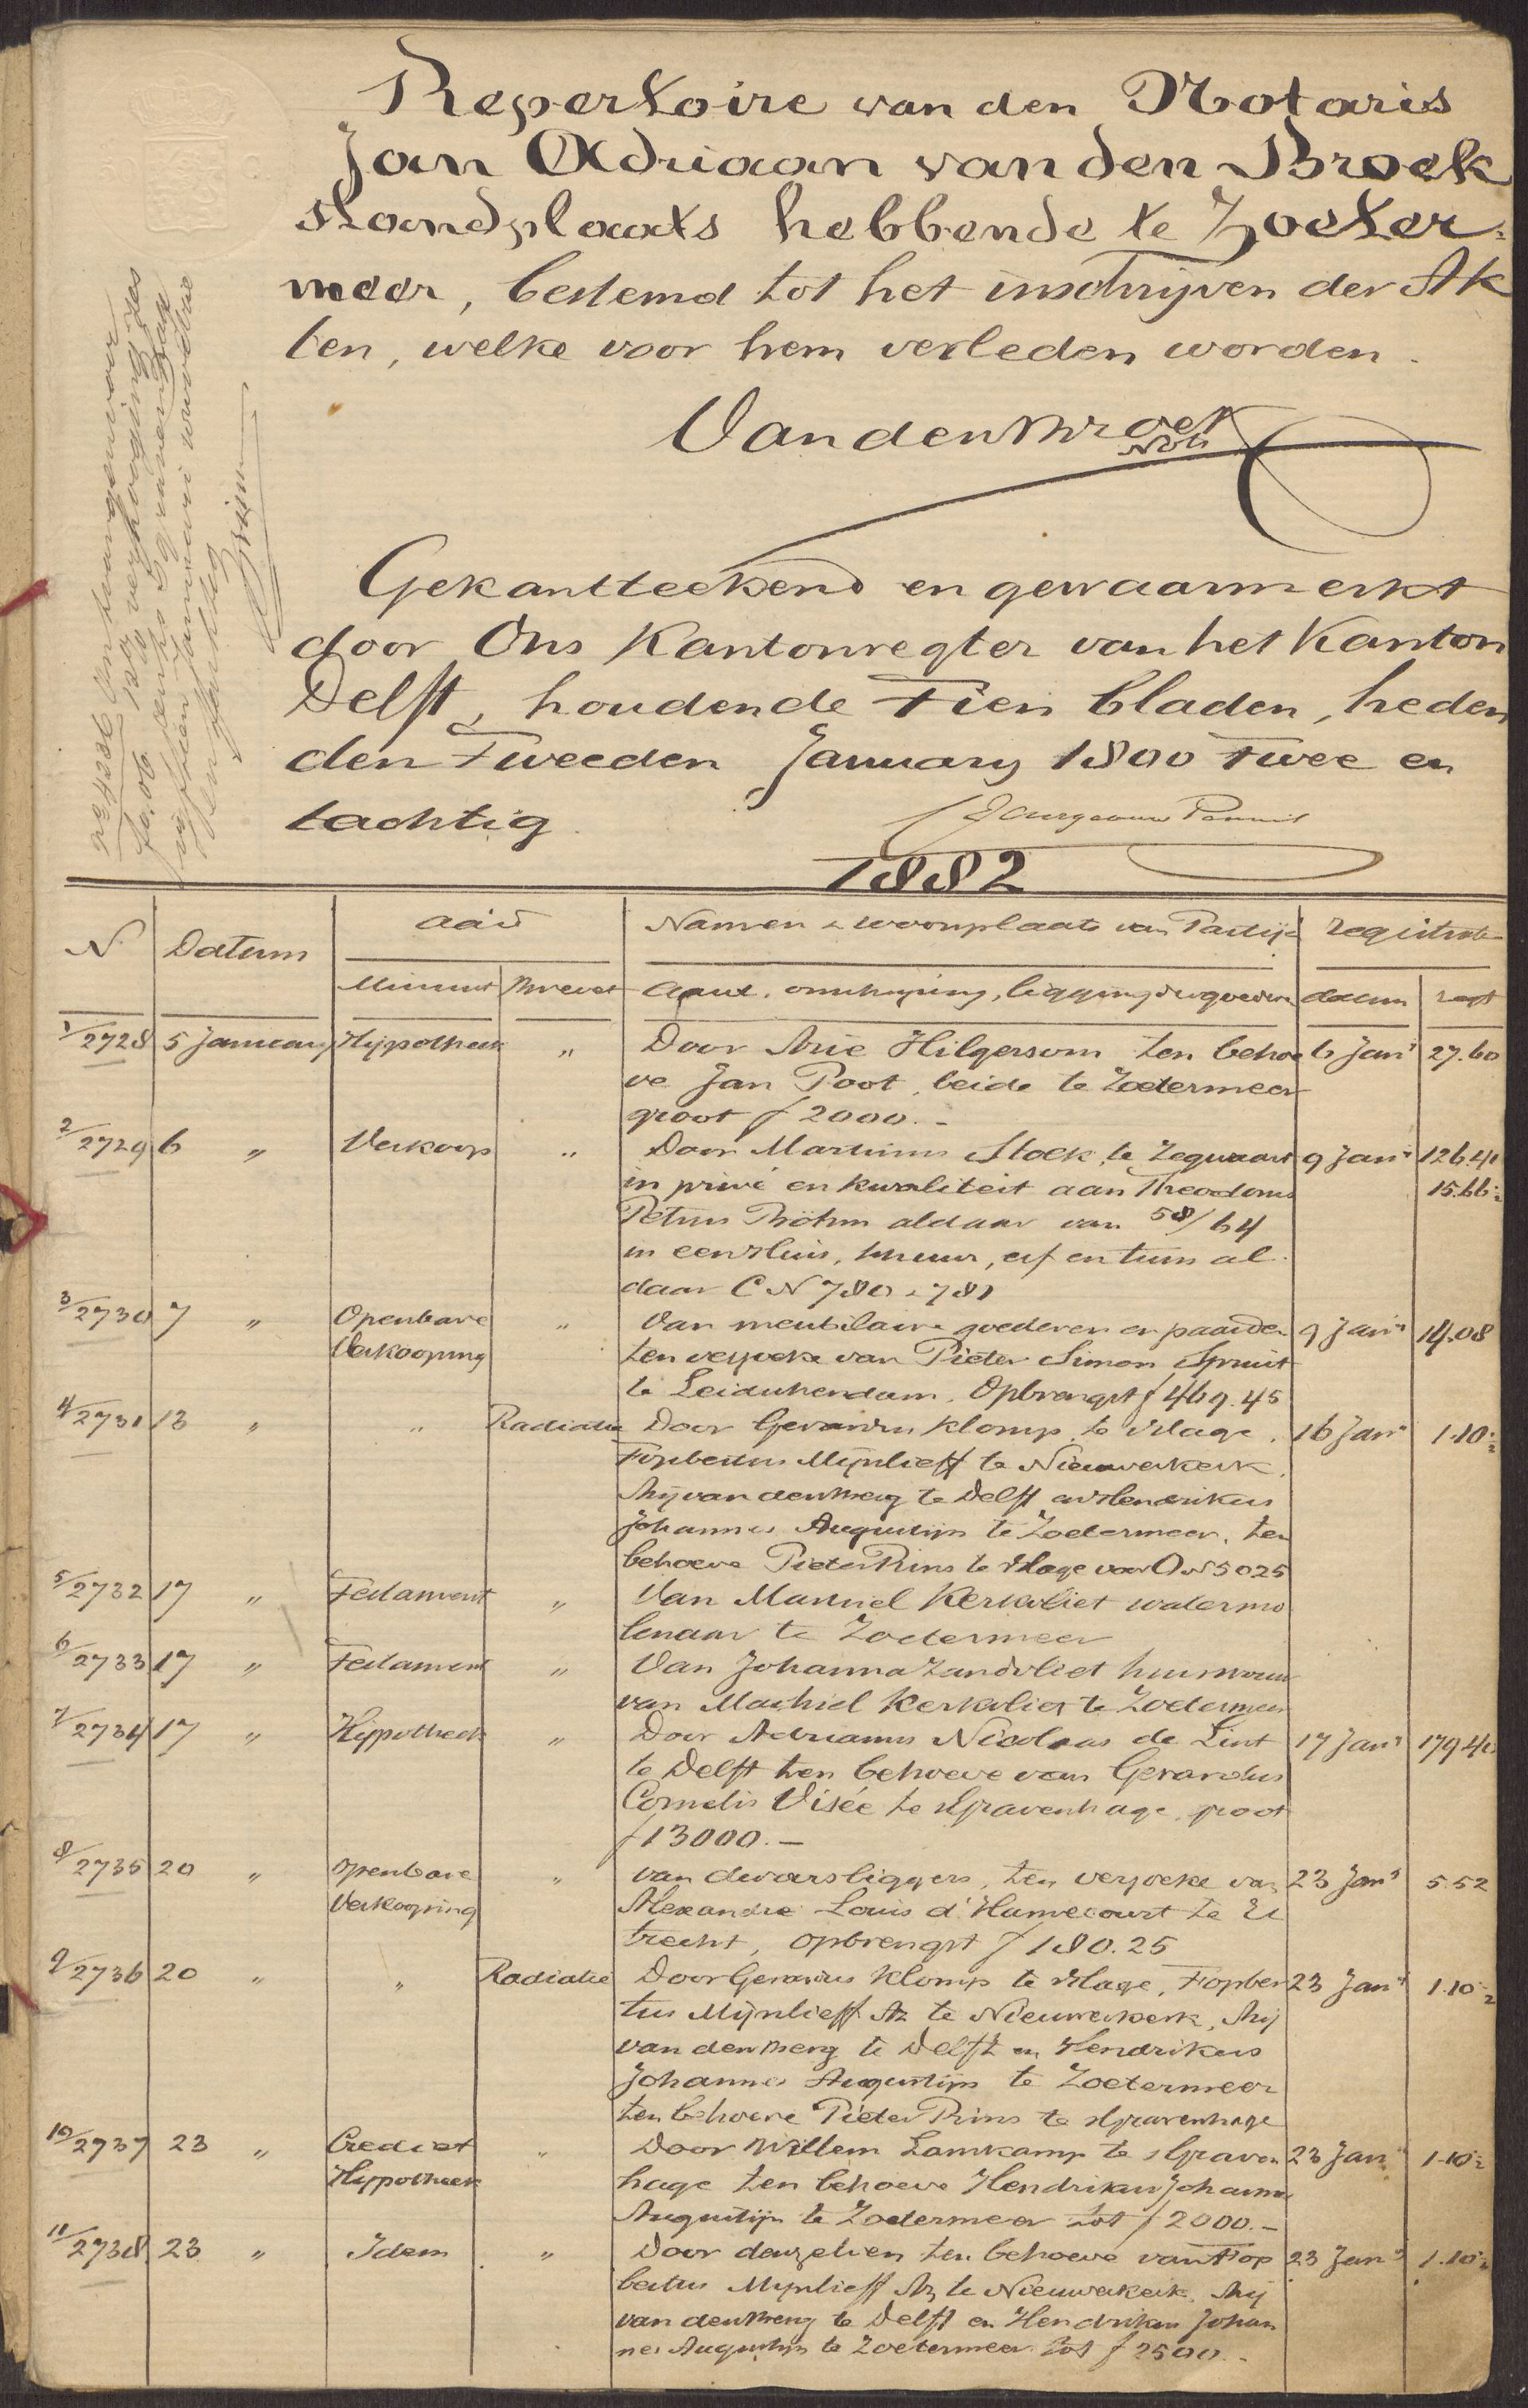 Repertoire van den Notaris
Jan Adriaan van den Broek
standplaats hebbende te Zoeter=
meer, bestemd tot het inschrijven der Ak
ten, welke voor hem verleden worden.
Van den Broek
Nots
Gekantteekend en gewaarmerkt
door Ons Kantonregter van het Kanton
Delft, houdende Tien bladen, heden
den Tweeden January 1800 Twee en
tachtig
1882
N Datum aard Namen & woonplaats van Partijen registratie
Minuut Brevet aard, omschrijving, ligging der goederen datum regt
1/2728 5 January Hypotheek " Door Arie Hilgersom ten behoe 6 Jan 27.60
ve Jan Poot, beide te Zoetermeer
groot f 2000.-
2/2729 6 " Verkoop " Door Martinus Stoek te Zegwaart 9 Jan 126.40
in privé en kwaliteit aan Theodorus 15.66
Petrus Böhm aldaar van 58/64
in een Huis, schuur, erf en tuin al
daar C N 780 & 781
3/2730 7 " Openbare " Van meubilaire goederen en paarden 9 Jan 14.08
Verkooping ten verzoeke van Pieter Simon Spruit
te Leidschendam. Opbrengst f 469.45
4/2731 13 " " Radiatie Door Gerardus Klomp te Hage, 16 Jan 1.10
Fopbertus Mijnlieff te Nieuwerkerk,
Arij van den Berg te Delft en Hendrikus
Johannes Augustijn te Zoetermeer, ten
behoeve Pieter Prins te Hage voor O N 5025
5/2732 17 " Testament " Van Manuel Kerkvliet watermo
lenaar te Zoetermeer
6/2733 17 " Testament " Van Johanna Zandvliet huisvrouw
van Machiel Kerkvliet te Zoetermeer
7/2734 17 " Hypotheek " Door Adrianus Nicolaas de Lint 17 Jan 179.40
te Delft ten behoeve van Gerardus
Cornelis Visée te sGravenhage, groot
f 13000.-
8/2735 20 " Openbare " van dwarsliggers, ten verzoeke van 23 Jan 5.52
Verkooping Alexandre Louis d'Hamecourt te U
trecht, opbrengst f 180.25
9/2736 20 " " Radiatie Door Gerardus Klomp te Hage, Fopber 23 Jan 1.10
tus Mijnlieff Az te Nieuwerkerk, Arij
van den Berg te Delft en Hendrikus
Johannes Augustijn te Zoetermeer
ten behoeve Pieter Prins te sGravenhage
10/2737 23 " Crediet " Door Willem Lamkamp te sGraven 23 Jan 1.10
Hypotheek hage ten behoeve Hendrikus Johannes
Augustijn te Zoetermeer tot f 2000.-
11/2738 23 " Idem " Door denzelven ten behoeve van Fop 23 Jan 1.10
bertus Mijnlieff Az te Nieuwerkerk, Arij
van den Berg te Delft en Hendrikus Johan
nes Augustijn te Zoetermeer tot f 2500.-